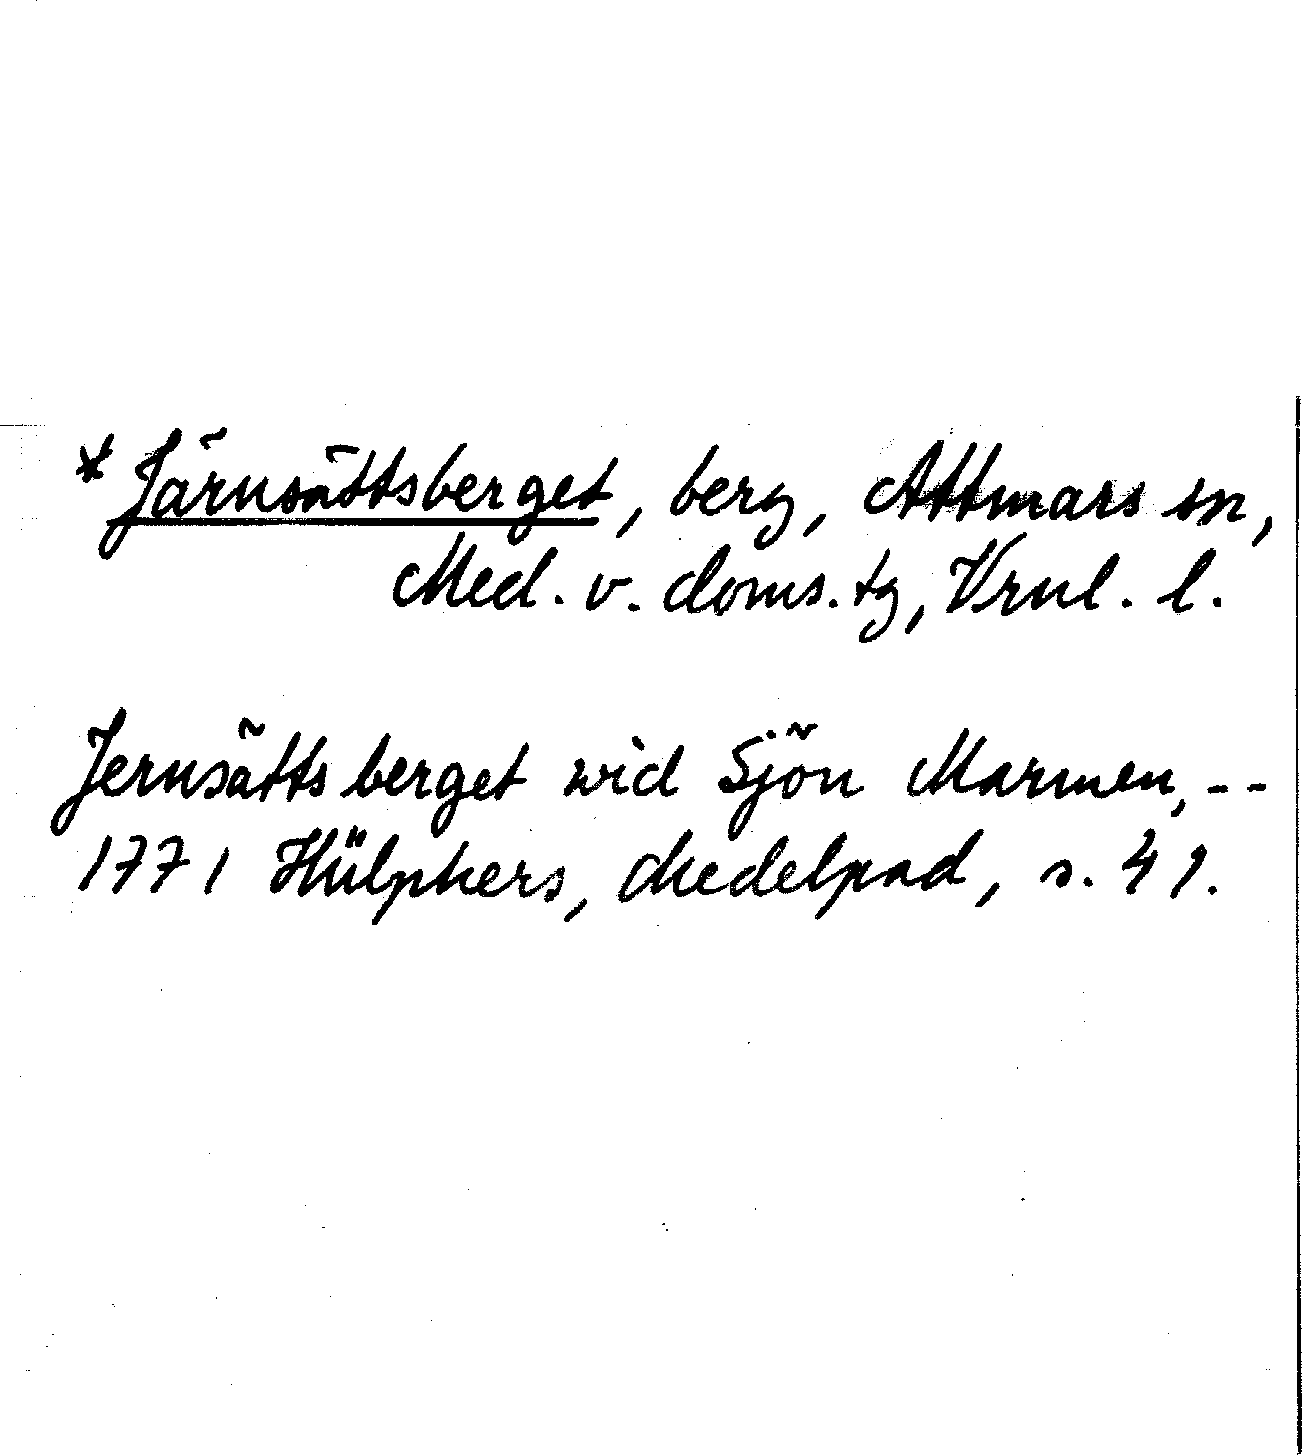 * Järnsättsberget, berg, Attmars sn,
Med. v. doms. tg, Vrnl. l.
Jernsätts berget wid Sjön Marmen, - -
1771 Hülphers, Medelpad, s. 41.